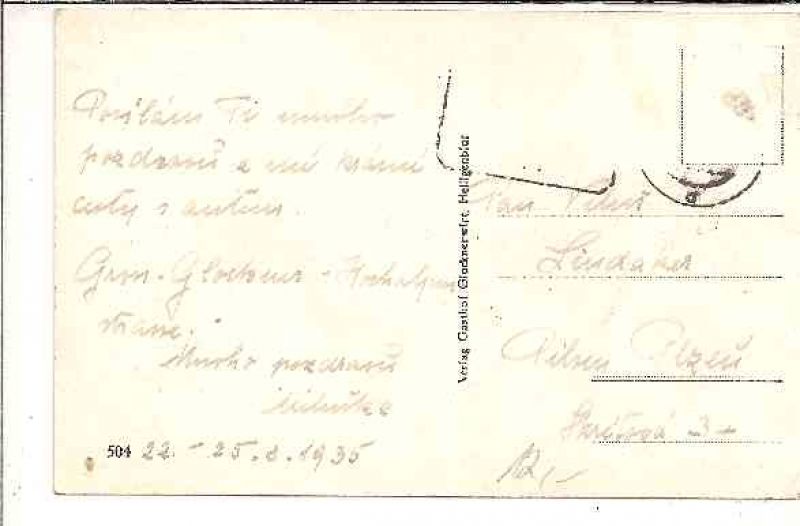 Posílám Ti mnoho
pozdravů z mé krásné
cesty s autem.
Gross-Glockner-Hochalpen
strasse.
Mnoho pozdravů
504 22.-25.8.1935
Verlag Gasthof Glocknerwirt, Heiligenblut
Pan
Lindauer
Pilsen Plzeň
3
12,-